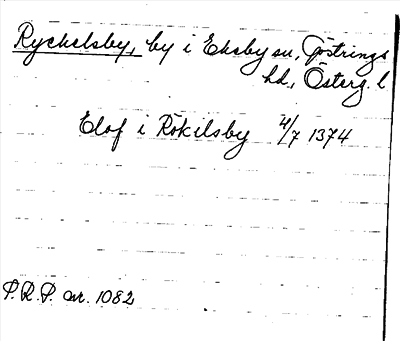 Ryckelsby, by i Ekebysn., Göstrings
hd., Österg. l
Elof i Rökilsby 4/7 1374
P.R.P. nr. 1082